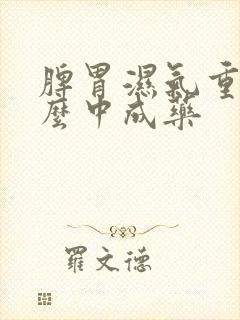 脾胃濕氣重
麼中成藥
羅文德